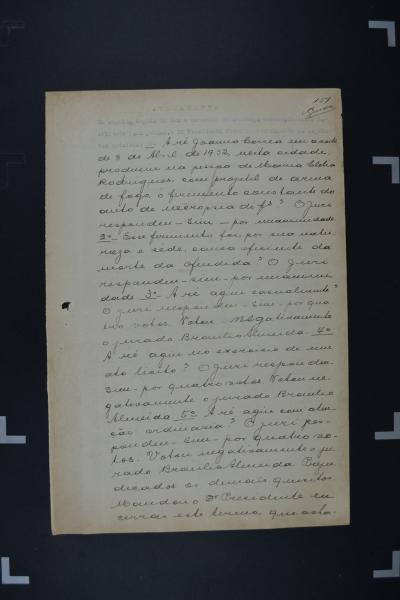 151
1º A ré Joanna Correa na noite
de 8 de Abril de 1932, nesta cidade,
produziu na pessoa de Maria Clelia
Rodrigues, com projetil de arma
de fogo, o ferimento constante do
auto de necropsia de fs? O Juri
respondeu – Sim – por unanimidade
2º Esse ferimento foi por sua natu-
reza e séde, causa eficiente da
morte da offendida? O Juri
respondeu – sim – por unanimi-
dade 3º A ré agiu casualmente?
O juri respondeu – sim – por qua-
tro votos. Votou negativamente
o jurado Braulio Almeida. 4º
A ré agiu no exercicio de um
ato licito? O Juri respondeu,
sim – por quatro votos. Votou ne-
gativamente o jurado Braulio
Almeida 5º A ré agiu com aten-
ção ordinaria? O Juri res-
pondeu – Sim – por quatro vo-
tos. Votou negativamente o ju-
rado Braulio Almeida
dicados os demais quesitos
Mandou o Dr Presidente en-
cerrar este termo, que